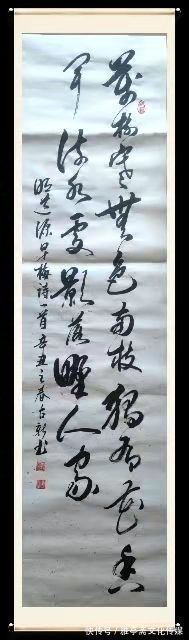 萬樹寒無色南枝獨有花香
闻流水處影落野人家
明道源早梅詩一首辛丑之春古
快传号/雅亭斋文化传媒